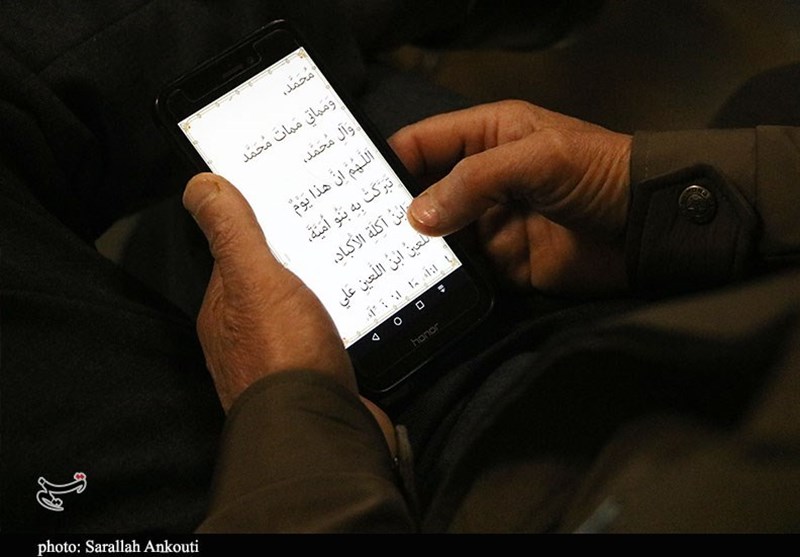 مُحَمَّدٍ،
وَمَماتِي مَماتَ مُحَمَّدٍ
وَآلِ مُحَمَّدٍ،
اللّٰهُمَّ إِنَّ هٰذا يَوْمٌ
تَبَرَّكَتْ بِهِ بَنُو أُمَيَّةَ،
وَابْنُ آكِلَةِ الْأَكْبادِ،
اللَّعِينُ ابْنُ اللَّعِينِ عَلىٰ
honor
photo: Sarallah Ankouti